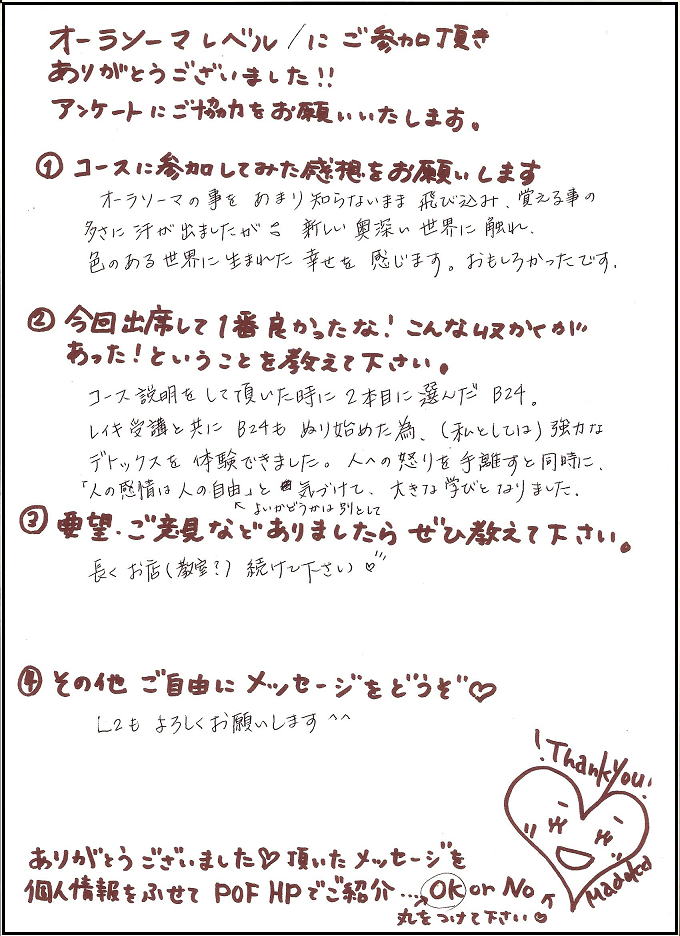 オーラソーマレベル1にご参加頂き
ありがとうございました!!
アンケートにご協力をお願いいたします。
① コースに参加してみた感想をお願いします
オーラソーマの事を あまり知らないまま 飛び込み、覚える事の
多さに 汗が出ましたが 新しい 奥深い 世界に 触れ、
色のある 世界に 生まれた 幸せを 感じます。おもしろかったです.
② 今回出席して1番良かったな!こんな収かくが
あった!ということを教えて下さい。
コース説明をして頂いた時に 2本目に選んだ B24。
レイキ受講と共に B24も ぬり始めた為、(私としては)強力な
デトックスを 体験できました。人への怒りを手離すと同時に、
「人の感情は人の自由」と 気づけて、大きな学びとなりました.
↖ よいかどうかは別として
③ 要望・ご意見などありましたら ぜひ教えて下さい。
長く お店(教室?) 続けて下さい ♡
④ その他 ご自由に メッセージをどうぞ♡
L2も よろしくお願いします ^^
!ThankYou!
Madoka
ありがとうございました♡ 頂いた メッセージを
個人情報をふせて POF HPでご紹介...OK or No
→丸をつけて下さい♡